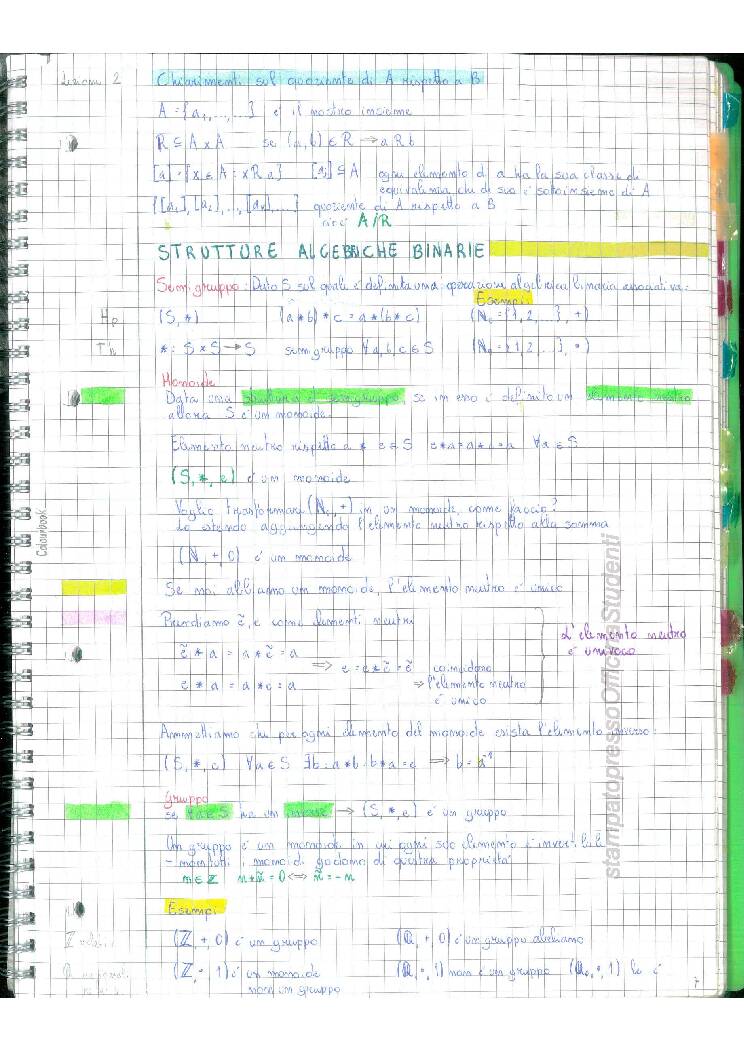 Lezione 2
Chiarimenti sul quoziente di A rispetto a B
A = {a₁, ..., ...} è il nostro insieme
R ⊆ A x A se (a, b) ∈ R → a R b
[a] = {x ∈ A : x R a} [a] ⊆ A ogni elemento di a ha la sua classe di
equivalenza che di suo è sottoinsieme di A
{[a₁], [a₂], ..., [aₙ], ...} quoziente di A rispetto a B
cioè A/R
STRUTTURE ALGEBRICHE BINARIE
Semigruppo: Dato S sul quale è definita una operazione algebrica binaria associativa:
Esempi
Hp (S, *) (a * b) * c = a * (b * c) (N₀ = {1, 2, ...}, +)
Th * : S x S → S semigruppo ∀ a, b, c ∈ S (N₀ = {1, 2, ...}, •)
Monoide
Data una struttura di semigruppo, se in esso è definito un elemento neutro
allora S è un monoide
Elemento neutro rispetto a * e ∈ S e * a = a * e = a ∀a ∈ S
(S, *, e) è un monoide
Voglio trasformare (N₀, +) in un monoide, come faccio?
Lo estendo aggiungendo l'elemento neutro rispetto alla somma
(N, +, 0) è un monoide
Se noi abbiamo un monoide, l'elemento neutro è unico
Prendiamo ẽ, e come elementi neutri
L'elemento neutro
è univoco
ẽ * a = a * ẽ = a
⇒ e = e * ẽ = ẽ coincidono
e * a = a * e = a ⇒ l'elemento neutro
è unico
Ammettiamo che per ogni elemento del monoide esista l'elemento inverso:
(S, *, e) ∀a ∈ S ∃b : a * b = b * a = e ⇒ b = a⁻¹
Gruppo
se ∀a ∈ S ha un inverso → (S, *, e) è un gruppo
Un gruppo è un monoide in cui ogni suo elemento è invertibile
- non tutti i monoidi godono di questa proprietà
n ∈ Z n * ñ = 0 ⇔ ñ = -n
Esempi
Z (Z, +, 0) è un gruppo (Q, +, 0) è un gruppo abeliano
Q (Z, •, 1) è un monoide (Q, •, 1) non è un gruppo (Q₀, •, 1) lo è
non un gruppo
7
Colourbook
stampatopressoOfficinaStudenti